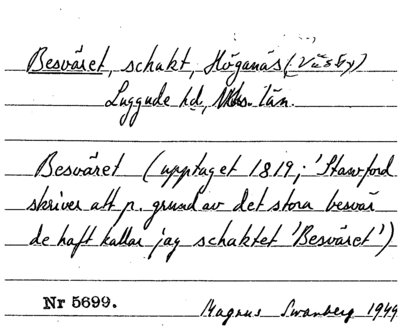 Besväret, schakt, Höganäs, (Väsby)
Luggude hd, Mhs. län.
Besväret (upptaget 1819; 'Stawford
skriver att p. grund av det stora besvär
de haft kallar jag schaktet 'Besväret')
Nr 5699.
Magnus Swanberg 1949